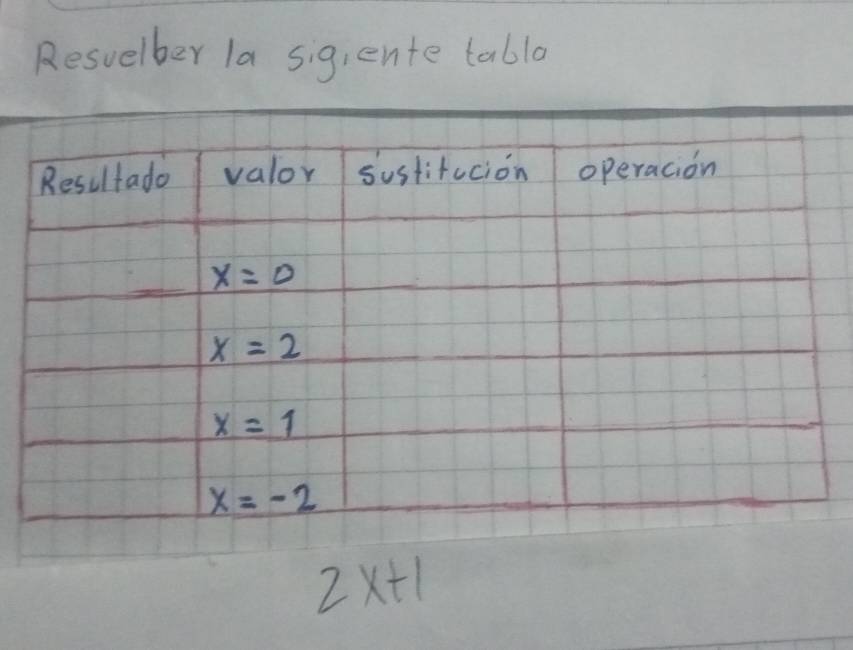 Resuelber la sigiente tabla
Resultado valor sustitución operación
x = 0
x = 2
x = 1
x = -2
2x+1